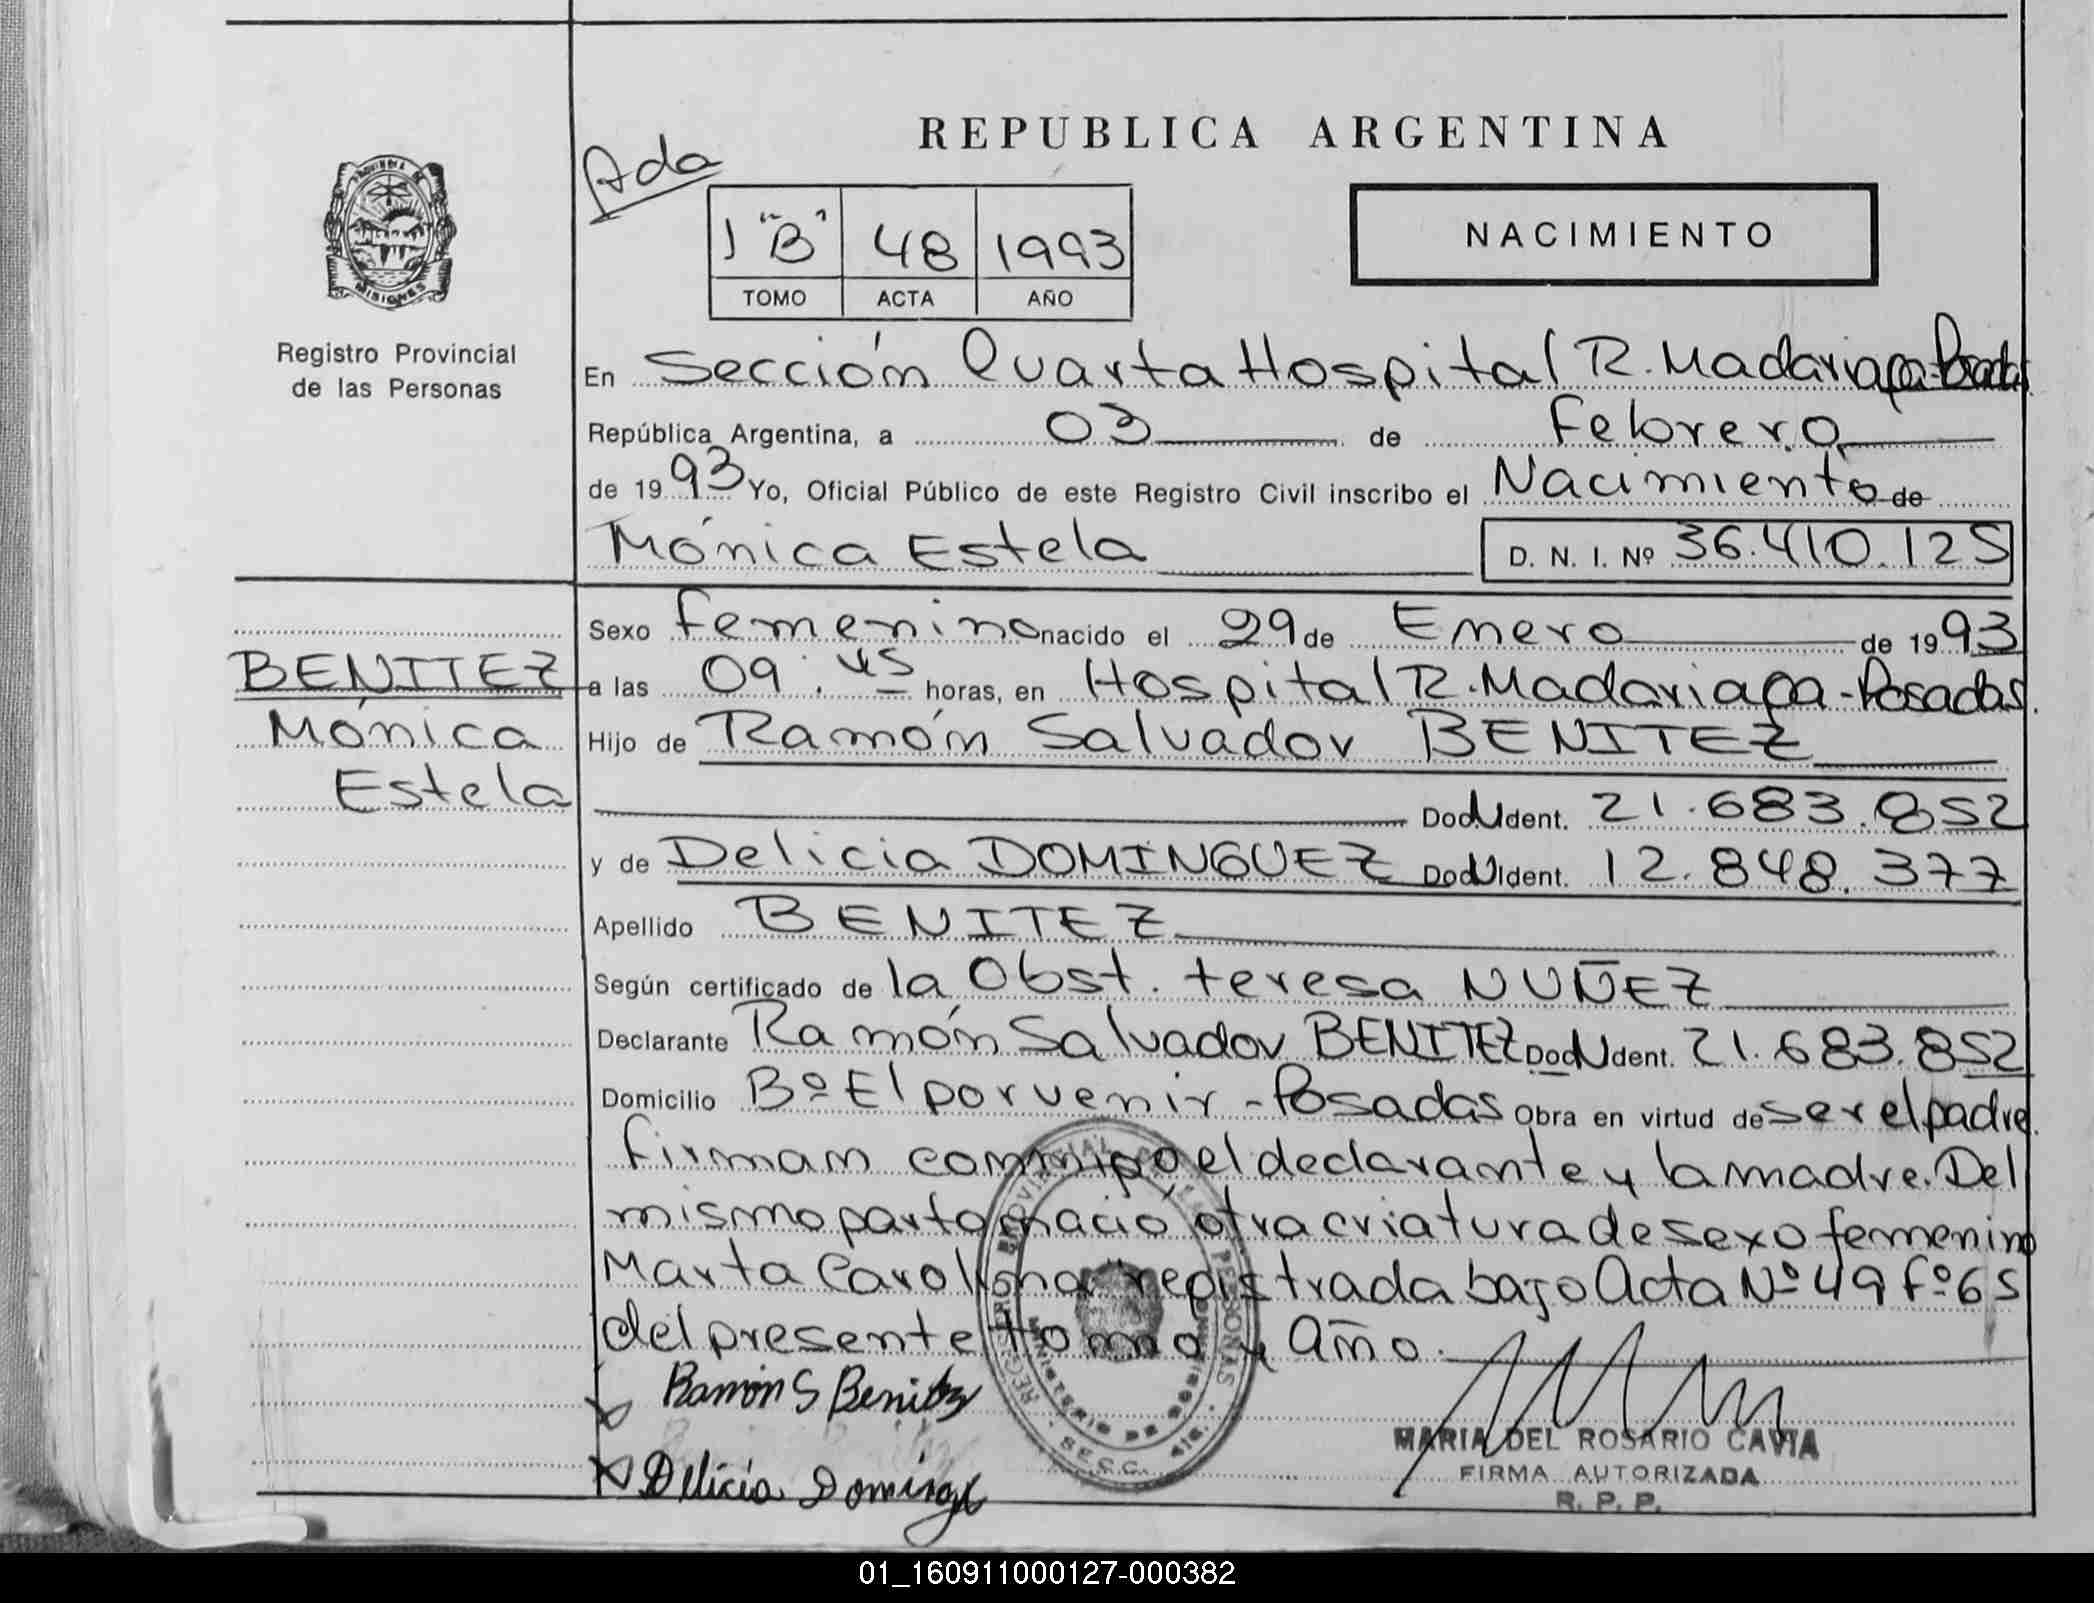 REPUBLICA ARGENTINA
Ada
1 "B" 48 1993
TOMO ACTA AÑO
NACIMIENTO
PROVINCIA DE
MISIONES
Registro Provincial
de las Personas
En Sección Cuarta Hospital R. Madariaga-Posadas
República Argentina, a 03 de Febrero
de 1993 Yo, Oficial Público de este Registro Civil inscribo el Nacimiento de
Mónica Estela D. N. I. Nº 36.410.125
Sexo femenino nacido el 29 de Enero de 1993
BENITEZ
Mónica
Estela
a las 09:45 horas, en Hospital R. Madariaga-Posadas.
Hijo de Ramón Salvador BENITEZ
Doc. Ident. 21.683.852
y de Delicia DOMINGUEZ Doc. Ident. 12.848.377
Apellido BENITEZ
Según certificado de la Obst. teresa NUÑEZ
Declarante Ramón Salvador BENITEZ Doc. Ident. 21.683.852
Domicilio Bº El porvenir-Posadas Obra en virtud de ser el padre.
firman conmigo, el declarante y la madre. Del
mismo parto nació otra criatura de sexo femenino
Marta Carolina registrada bajo Acta Nº 49 fº 65
del presente tomo y año.
Ramón S Benitez
Delicia
MARIA DEL ROSARIO CAVIA
FIRMA AUTORIZADA
R. P. P.
01_160911000127-000382